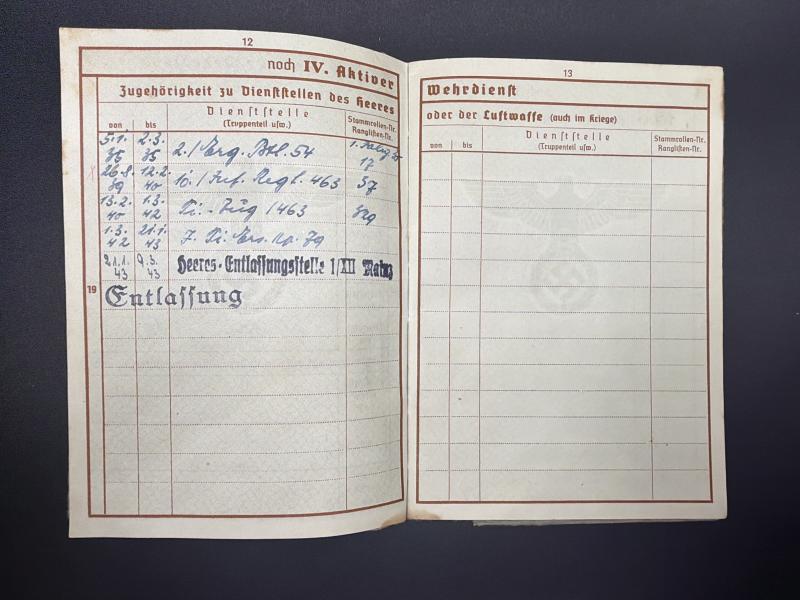 12
noch IV. Aktiver
Zugehörigkeit zu Dienststellen des Heeres
von bis Dienststelle (Truppenteil usw.) Stammrollen-Nr. Ranglisten-Nr.
5.1. 35 2.3. 35 2./Erg. Btl. 54 17
26.8. 39 12.2. 40 10./Inf. Regt. 463 57
13.2. 40 1.3. 42 Pi.-Zug/463
1.3. 42 21.1. 43 Pi. Ers.
21.1. 43 9.3. 43 Heeres-Entlassungsstelle 1/XII Mainz
19 Entlassung
13
Wehrdienst
oder der Luftwaffe (auch im Kriege)
von bis Dienststelle (Truppenteil usw.) Stammrollen-Nr. Ranglisten-Nr.